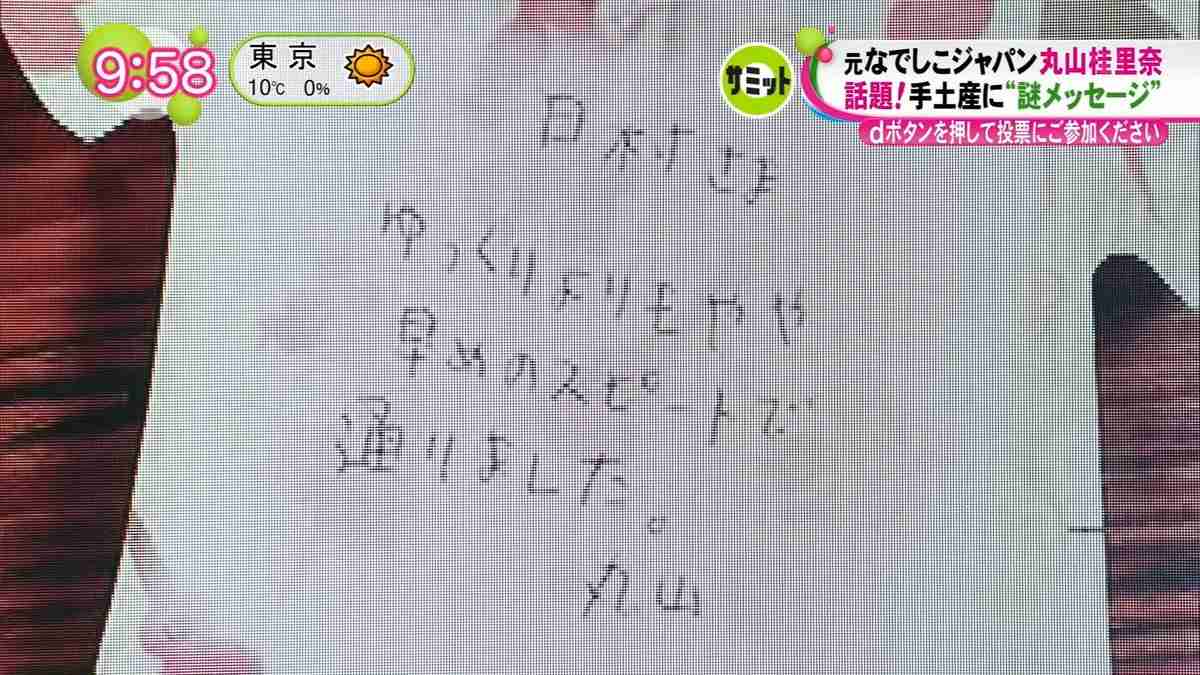 9:58
東京
10℃ 0%
サミット
元なでしこジャパン丸山桂里奈
話題!手土産に“謎メッセージ”
dボタンを押して投票にご参加ください
日よりさま
ゆっくりよりもやや
早めのスピートで
通りました。
丸山